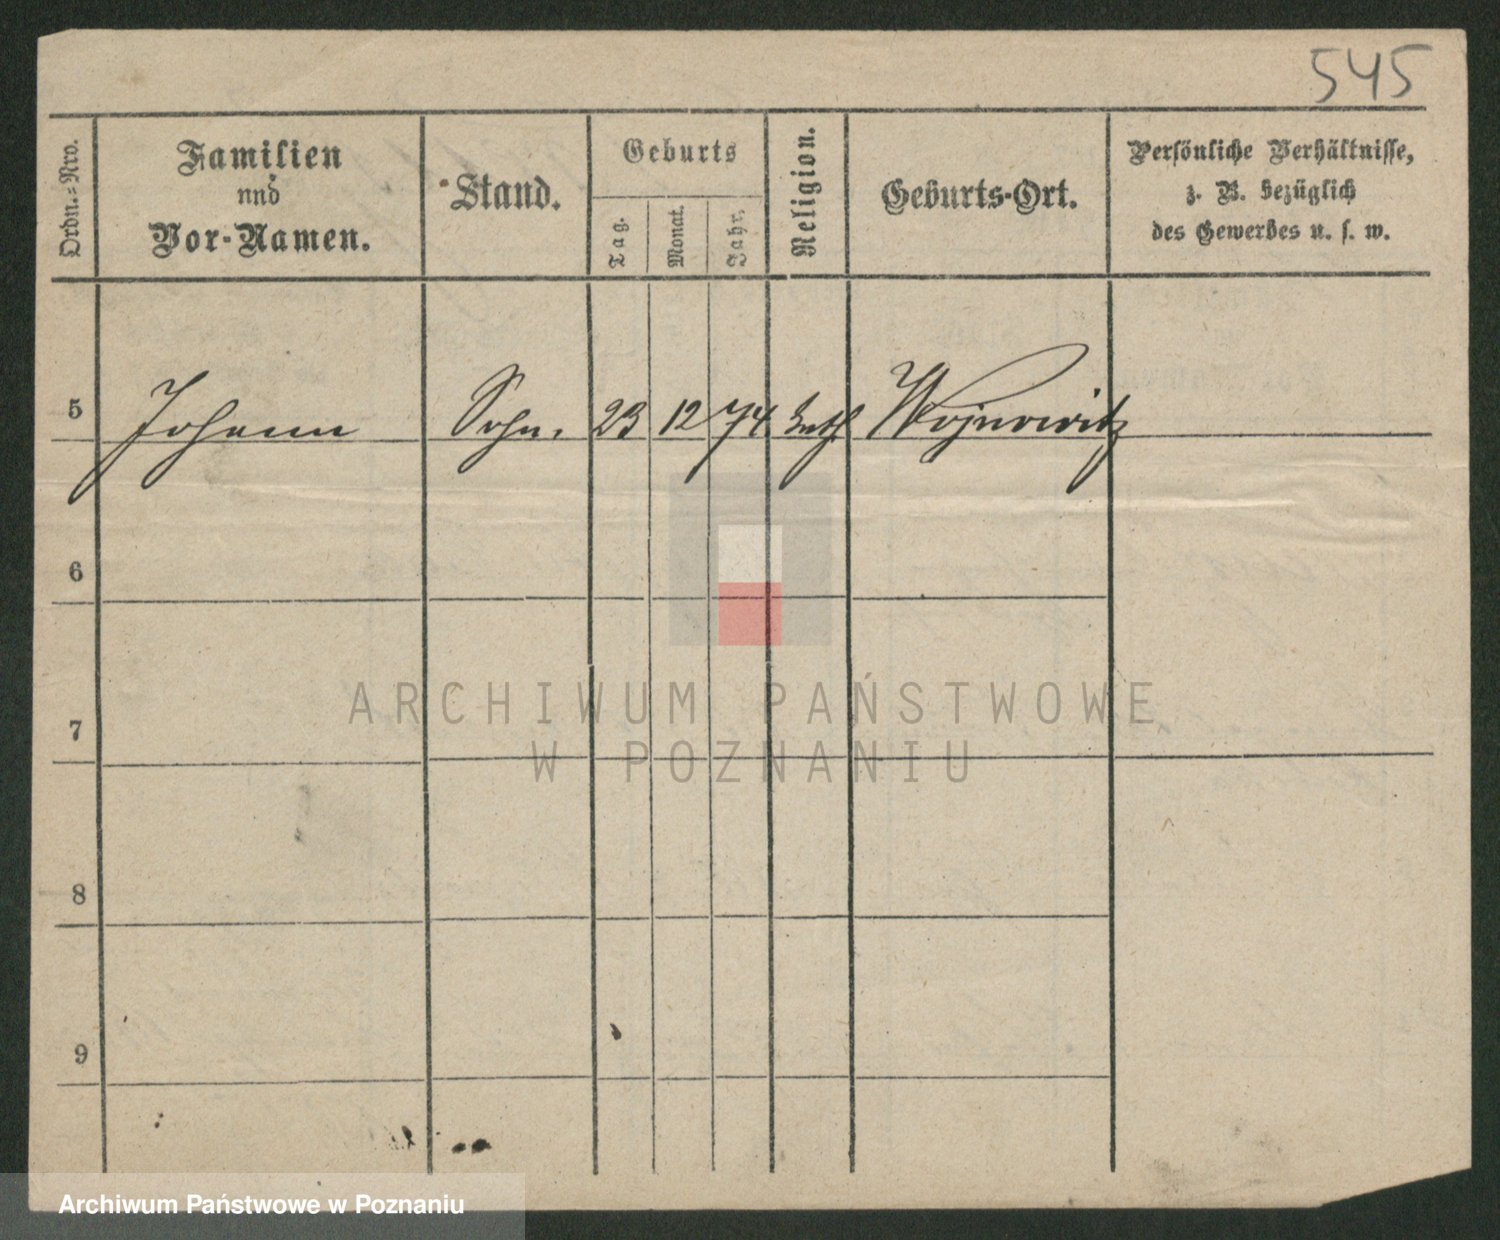 545
Ordn.=Nro.
Familien
und
Vor-Namen.
Stand.
Geburts
Tag.
Monat.
Jahr.
Religion.
Geburts-Ort.
Persönliche Verhältnisse,
z. B. bezüglich
des Gewerbes u. s. w.
5 Johann Sohn. 23 12 74 Wojnowitz
6
7
8
9
ARCHIWUM PAŃSTWOWE
W POZNANIU
Archiwum Państwowe w Poznaniu